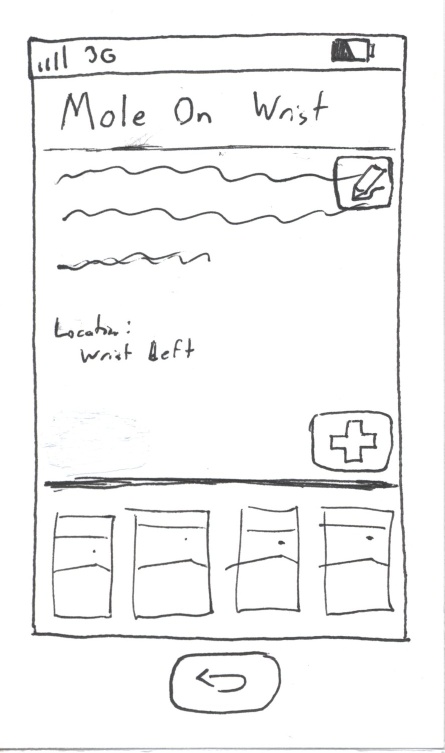 3G
Mole On Wrist
Location:
Wrist Left